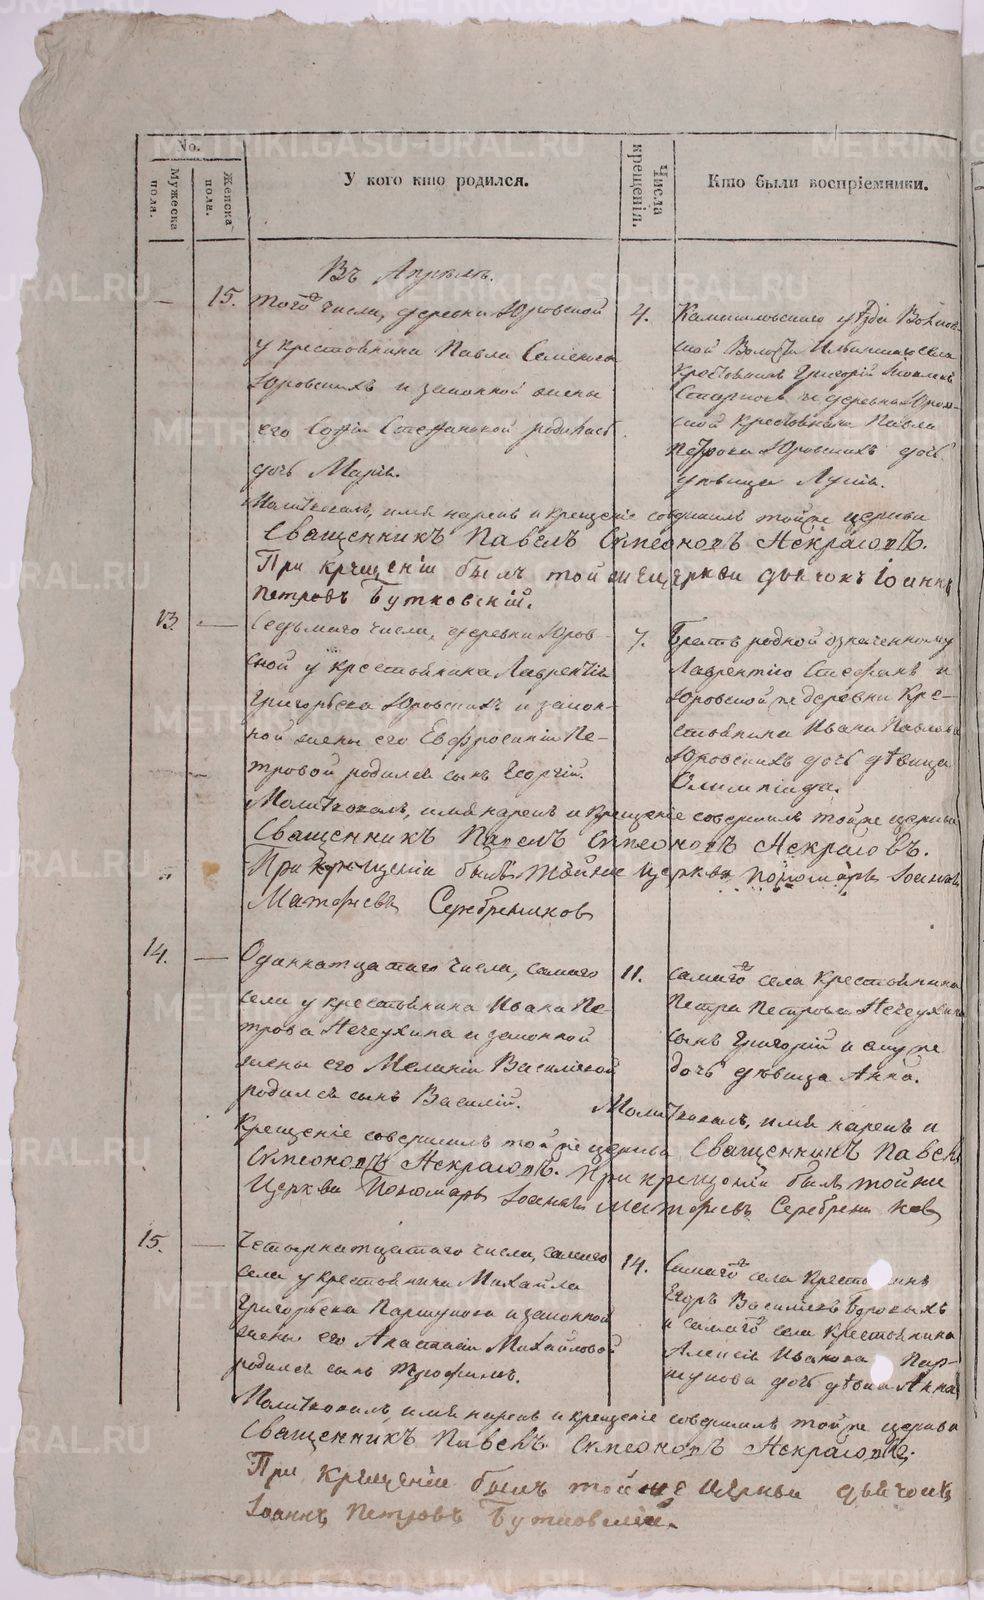 No.
Мужеска пола.
Женска пола.
У кого кто родился.
Числа крещенія.
Кто были воспріемники.
Въ Апрѣлѣ.
15. того числа, деревни Юровской
у крестьянина Павла Семенова
Юровскихъ и законной жены
его Софіи Стефановой родилась
дочь Марія.
4. Камышловскаго уѣзда
ской Волости села
крестьянинъ Григорій
и деревни Юров-
ской крестьянина Павла
Петрова Юровскихъ дочь
дѣвица
Молитвовалъ, имя нарекъ и крещеніе совершилъ тойже церкви
Священникъ Павелъ Симеоновъ Некрасовъ.
При крещеніи былъ тойже церкви дьячокъ Іоаннъ
Петровъ Бутковскій.
13. Седьмаго числа, деревни Юров-
ской у крестьянина Лаврентія
Григорьева Юровскихъ и закон-
ной жены его Евфросиніи Пе-
тровой родился сынъ Георгій.
7. Братъ родной означенному
Лаврентію Стефанъ и
Юровской же деревни кре-
стьянина Ивана Павлова
Юровскихъ дочь дѣвица
Олимпіада.
Молитвовалъ, имя нарекъ и крещеніе совершилъ тойже церкви
Священникъ Павелъ Симеоновъ Некрасовъ.
При крещеніи былъ тойже церкви пономарь Іоаннъ
Матфиевъ Серебрениковъ
14. Одиннатцатаго числа, самаго
села у крестьянина Ивана Пе-
трова Нечеухина и законной
жены его Меланіи Васильевой
родился сынъ Василій.
11. самаго села крестьянина
Петра Петрова Нечеухина
сынъ Григорій и ему же
дочь дѣвица Анна.
Молитвовалъ, имя нарекъ и
крещеніе совершилъ тойже церкви Священникъ Павелъ
Симеоновъ Некрасовъ. При крещеніи былъ тойже
Церкви Пономарь Іоаннъ Матфиевъ Серебрениковъ
15. Четырнатцатаго числа, самаго
села у крестьянина Михаила
Григорьева Паршукова и законной
жены его Анастасіи Михайловой
родился сынъ Трофимъ.
14. Самаго села крестьянинъ
Егоръ Васильевъ
и самаго села крестьянина
Алексія Иванова Пар-
шукова дочь дѣвица Анна
Молитвовалъ, имя нарекъ и крещеніе совершилъ тойже церкви
Священникъ Павелъ Симеоновъ Некрасовъ.
При крещеніи былъ тойже церкви дьячокъ
Іоаннъ Петровъ Бутковскій.
METRIKI.GASU-URAL.RU